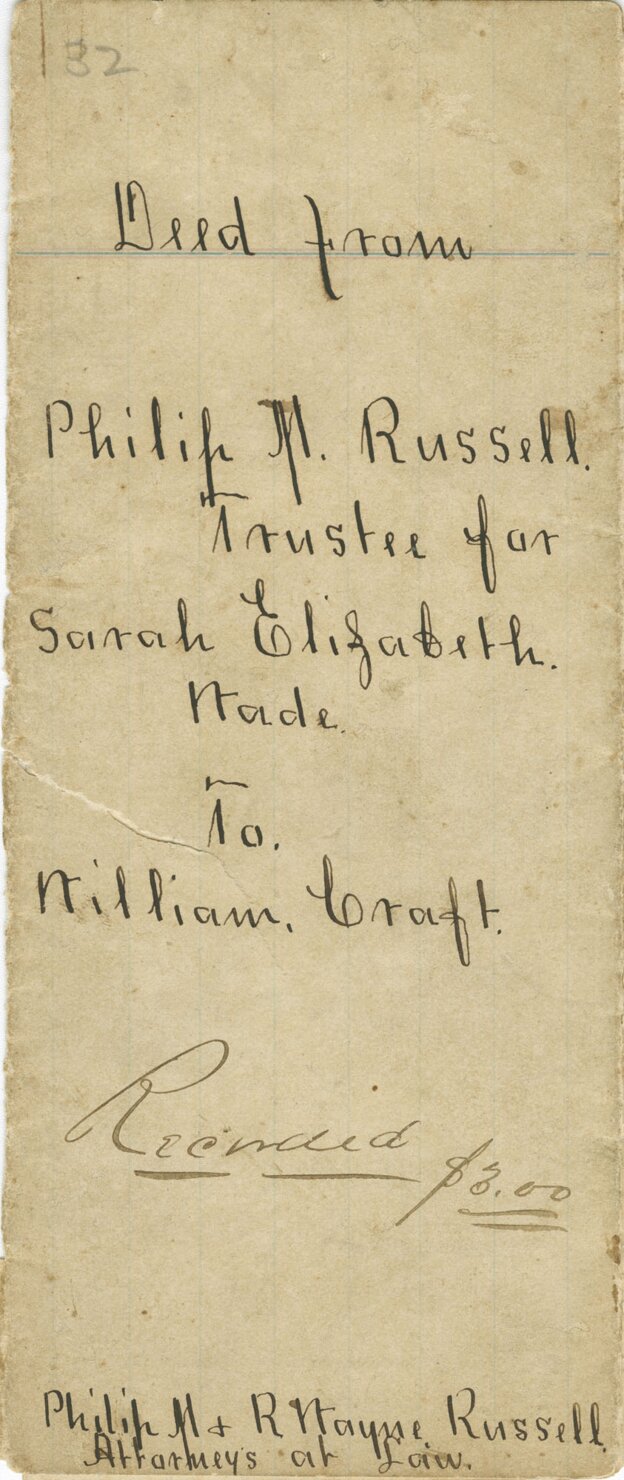 32
Deed from
Philip M. Russell.
Trustee for
Sarah Elizabeth.
Wade.
To.
William. Craft.
Recorded
$3.00
Philip M & R Wayne Russell.
Attorneys at Law.